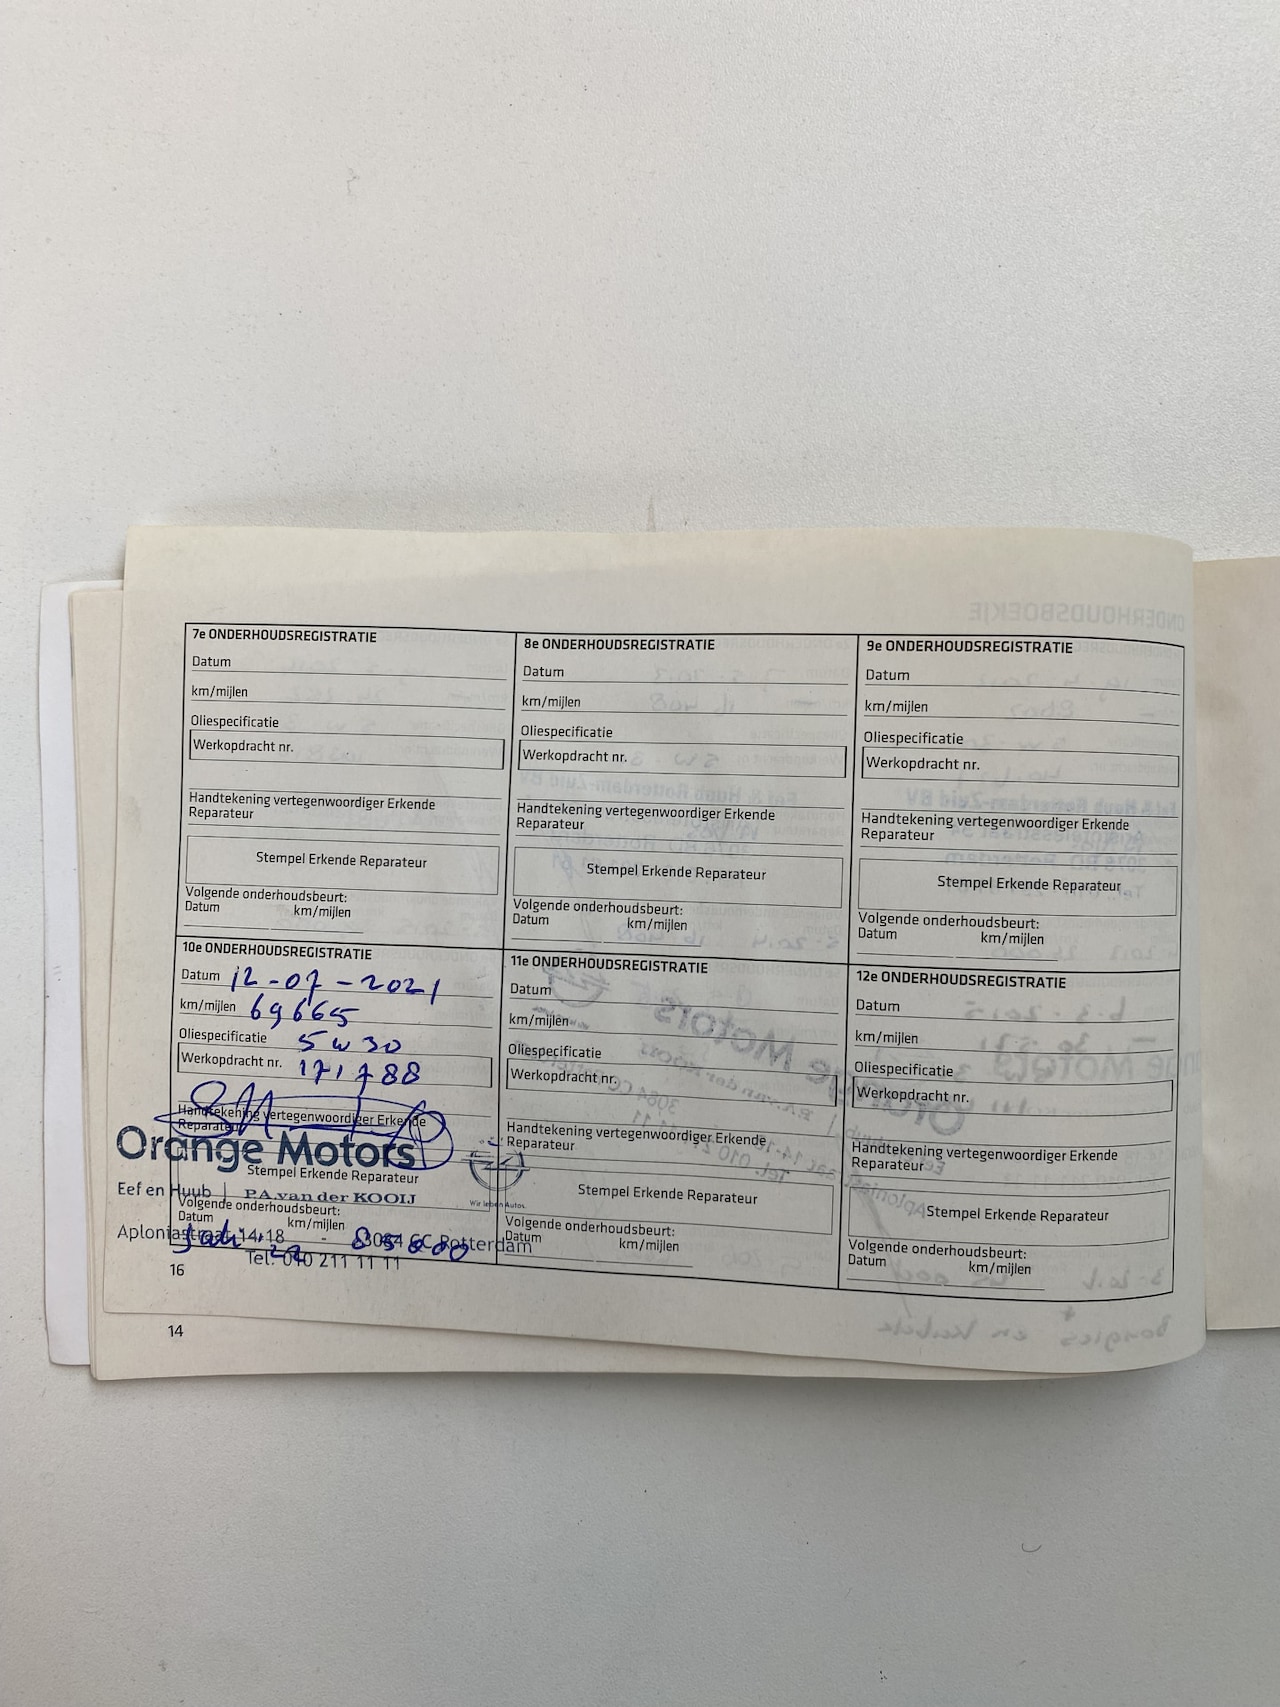 7e ONDERHOUDSREGISTRATIE
Datum
km/mijlen
Oliespecificatie
Werkopdracht nr.
Handtekening vertegenwoordiger Erkende
Reparateur
Stempel Erkende Reparateur
Volgende onderhoudsbeurt:
Datum km/mijlen
8e ONDERHOUDSREGISTRATIE
Datum
km/mijlen
Oliespecificatie
Werkopdracht nr.
Handtekening vertegenwoordiger Erkende
Reparateur
Stempel Erkende Reparateur
Volgende onderhoudsbeurt:
Datum km/mijlen
9e ONDERHOUDSREGISTRATIE
Datum
km/mijlen
Oliespecificatie
Werkopdracht nr.
Handtekening vertegenwoordiger Erkende
Reparateur
Stempel Erkende Reparateur
Volgende onderhoudsbeurt:
Datum km/mijlen
10e ONDERHOUDSREGISTRATIE
Datum 12-07-2021
km/mijlen 69665
Oliespecificatie 5w30
Werkopdracht nr. 171788
Handtekening vertegenwoordiger Erkende
Reparateur
Orange Motors
Stempel Erkende Reparateur
Eef en Huub | P.A. van der KOOIJ
Wir leben Autos.
Volgende onderhoudsbeurt:
Datum km/mijlen
Aploniastraat 14-18 - 3084 CC Rotterdam
85000
Tel. 010 211 11 11
16
11e ONDERHOUDSREGISTRATIE
Datum
km/mijlen
Oliespecificatie
Werkopdracht nr.
Handtekening vertegenwoordiger Erkende
Reparateur
Stempel Erkende Reparateur
Volgende onderhoudsbeurt:
Datum km/mijlen
12e ONDERHOUDSREGISTRATIE
Datum
km/mijlen
Oliespecificatie
Werkopdracht nr.
Handtekening vertegenwoordiger Erkende
Reparateur
Stempel Erkende Reparateur
Volgende onderhoudsbeurt:
Datum km/mijlen
14